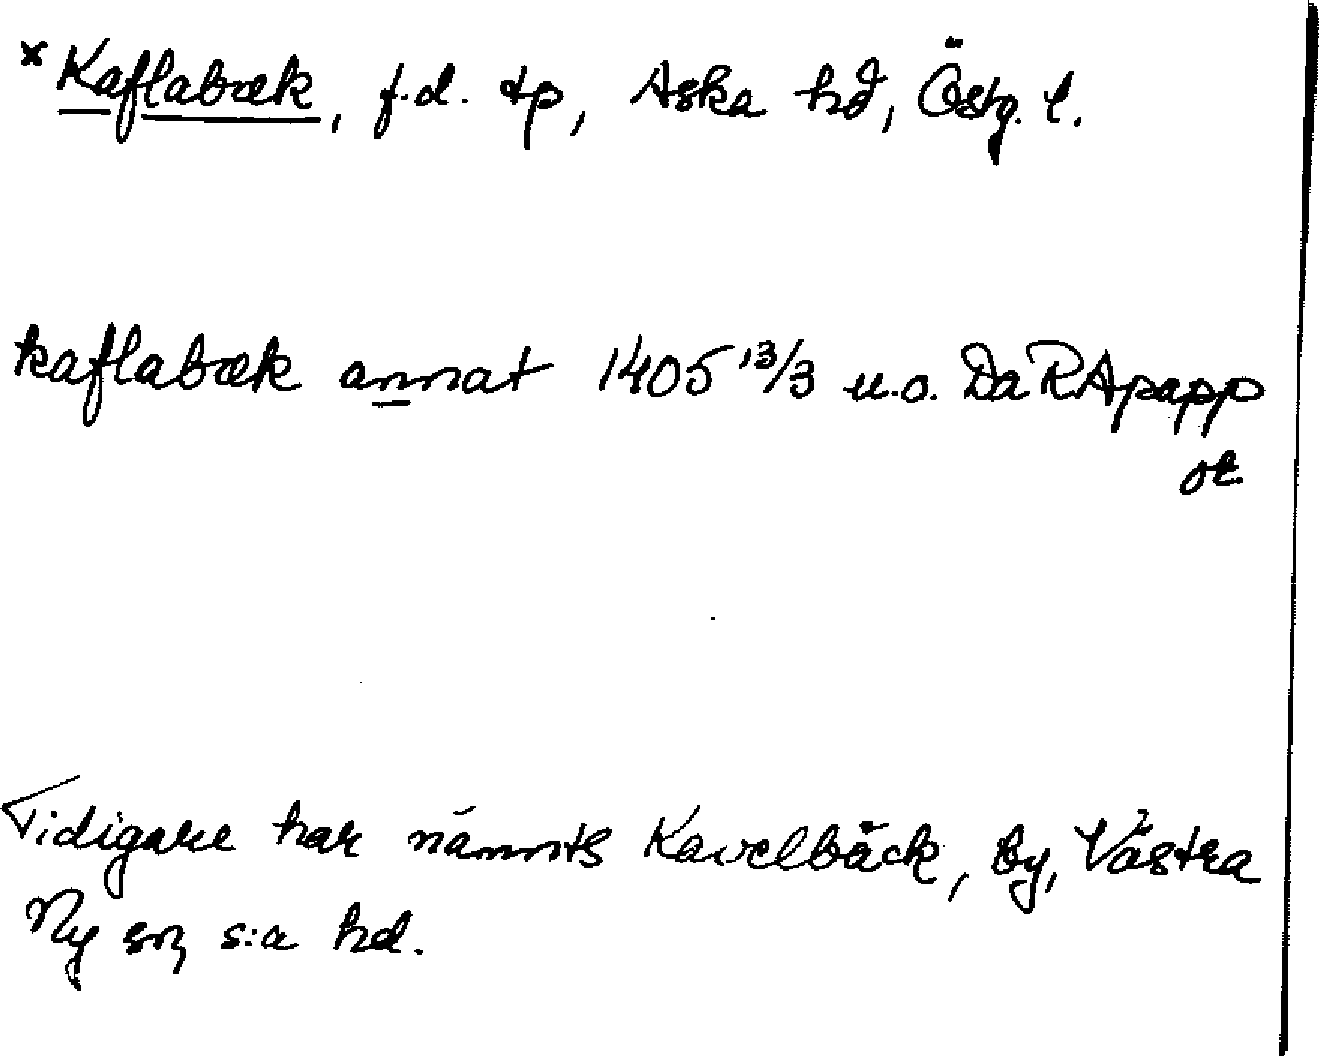 * Kaflabæk, f.d. tp, Aska hd, Östg. l.
kaflabæk annat 1405 13/3 u.o. DaRApapp
or.
Tidigare har nämnts Kavelbäck, by, Västra
Ny sn, s:a hd.